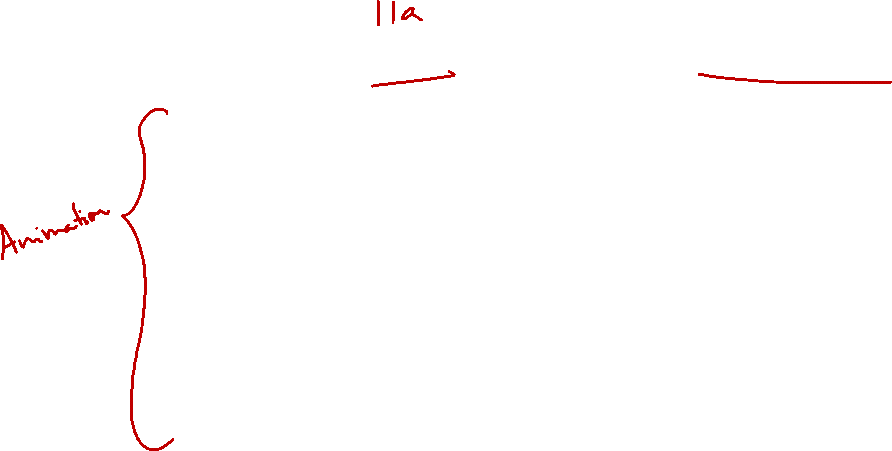 11a
Animation